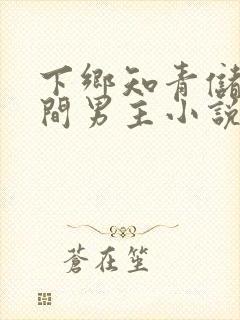 下鄉知青儲
間男主小說
蒼在笙